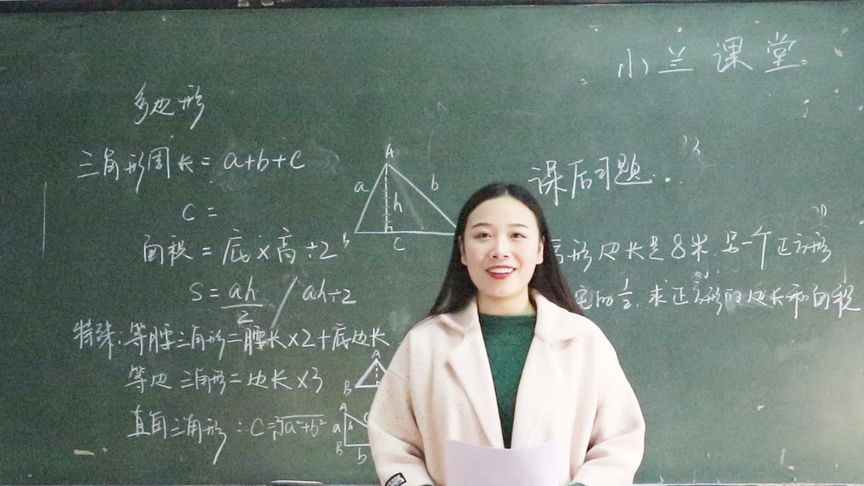 小兰课堂
多边形
三角形周长 = a+b+c
C =
面积 = 底×高÷2
S = ah/2 / ah÷2
特殊:等腰三角形=腰长×2+底边长
等边三角形=边长×3
直角三角形:C=√a²+b²
A
a
b
h
C
A
B
A
a
h
B
b
课后习题
形边长是8米.另一个正方形
它的1/2.求正方形的边长和面积